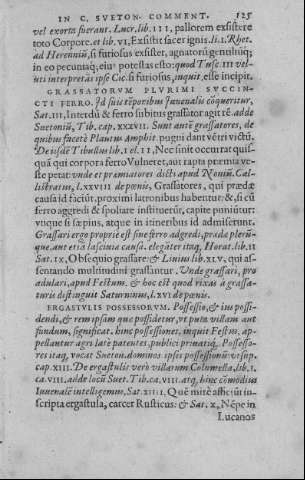 IN C. SVETON. COMMENT. 125
vel exorti fuerant. Lucr. lib. III, pallorem exsistere
toto Corpore. et lib. VI, Exsistit sacer ignis. li. I. Rhet.
ad Herenniũ, si furiosus exsistet, agnatorũ gentiliũq;
in eo pecuniaq; eius potestas esto: quod Tusc. III vel-
uti interpretãs ipse Cic. si furiosus, inquit, esse incipit.
GRASSATORVM PLVRIMI SVCCIN-
CTI FERRO. Id suis tẽporibus Iuuenalis cõqueritur,
Sat. III, Interdũ & ferro subitus grassator agit rẽ. adde
Suetoniũ, Tib. cap. XXXVII. Sunt autẽ grassatores, de
quibus facetè Plautus Amphit. pugni dant vĩctri victũ.
De iisdẽ Tibullus lib. I el. II, Nec sinit occurrat quis-
quã qui corpora ferro Vulneret, aut rapta præmia ve-
ste petat: vnde et præmiatores dicti apud Noniũ. Cal-
listratus, l. XXVIII de pœnis, Grassatores, qui prædæ
causa id faciũt, proximi latronibus habentur: &, si cũ
ferro aggredi & spoliare instituerũt, capite puniũtur:
vtique si sæpius, atque in itineribus id admiserunt.
Grassari ergo propriè est sine ferro adgredi, prædæ plerũ-
que, aut etiã lasciuiæ causa. elegãter itaq; Horat. lib. II
Sat. IX, Obsequio grassare: & Liuius lib. XLV, qui as-
sentando multitudini grassantur. Vnde grassari, pro
adulari, apud Festum. & hoc est quod rixas à grassa-
turis distinguit Saturninus, l. XVI de pœnis.
ERGASTVLIS POSSESSORVM. Possessio, & ius possi-
dendi, & rem ipsam quæ possidetur, vt puta villam aut
fundum, significat. hinc possessiones, inquit Festus, ap-
pellantur agri latè patentes, publici priuatiq; Possesso-
res itaq; vocat Sueton. dominos ipsos possessionũ vt sup.
cap. XIII. De ergastulis verò villarum Columella, lib. I.
ca. VIII. adde locũ Suet. Tib. ca. VIII. atq; hinc cõmodius
Iuuenalẽ intelligemus, Sat. XIIII. Quẽ mirè afficiũt in-
scripta ergastula, carcer Rusticus: & Sat. X, Nẽpe in
Lucanos